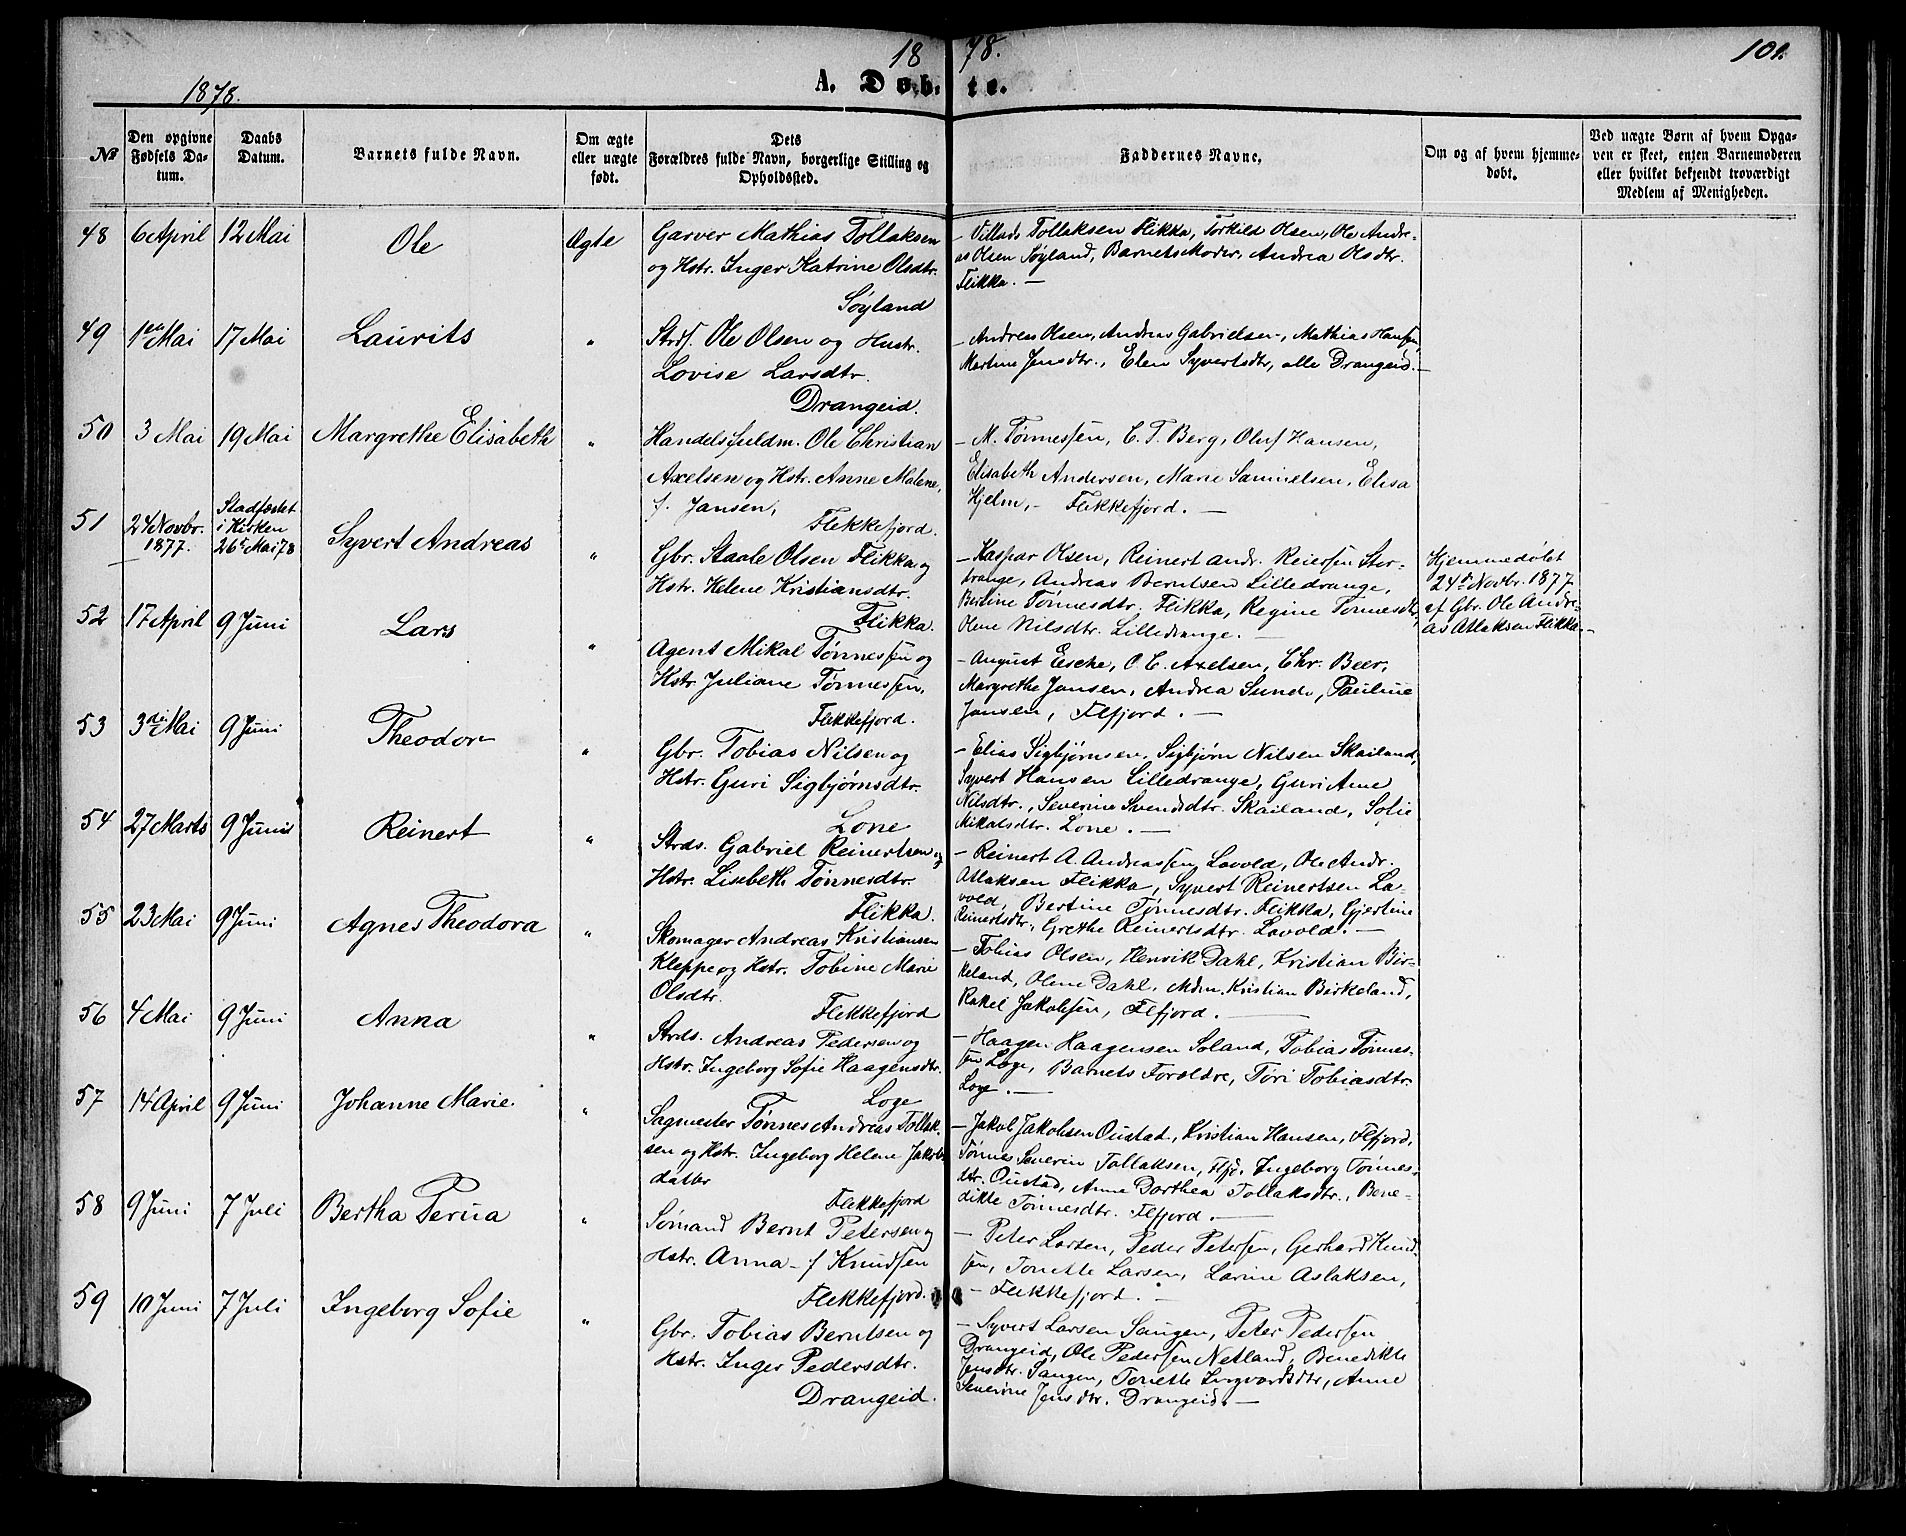 1878. 101.
A. Døbte.
1878.
No
Den opgivne Fødsels Datum.
Daabs Datum.
Barnets fulde Navn.
Om ægte eller uægte født.
Dets Forældres fulde Navn, borgerlige Stilling og Opholdssted.
Faddernes Navne.
Om og af hvem hjemmedøbt.
Ved uægte Børn af hvem Opgaven er skeet, enten Barnemoderen eller hvilket bekjendt troværdigt Medlem af Menigheden.
48 6 April 12 Mai Ole Ægte
Garver Mathias Tollaksen
og Hstr. Inger Katrine Olsdtr.
Søyland
- Villads Tollaksen Flikka, Torkild Olsen, Ole Andre-
as Olsen Søyland, Barnets Moder, Andrea Olsdtr.
Flikka. -
49 1ste Mai 17 Mai Laurits "
Strds. Ole Olsen og Hustr.
Lovise Larsdtr.
Drangeid.
- Andreas Olsen, Andreas Gabrielsen, Mathias Hansen,
Martine Jensdtr., Elen Syvertsdtr, alle Drangeid. -
50 3 Mai 19 Mai Margrethe Elisabeth "
Handelsfuldm. Ole Christian
Axelsen og Hstr. Anne Malene,
f. Jansen,
Flekkefjord.
- M. Tønnessen, C. T. Berg, Oluf Hansen,
Elisabeth Andersen, Marie Samuelsen, Elisa
Hjelm, - Flekkefjord. -
51 24 Novbr. 1877. Stadfæstet i Kirken 26t Mai 78 Syvert Andreas "
Gbr. Staale Olsen Flikka og
Hstr. Helene Kristiansdtr.
Flikka.
- Kaspar Olsen, Reinert Andr. Reiersen Stor-
drange, Andreas Berntsen Lilledrange,
Bertine Tønnesdtr. Flikka, Regine Tønnesdtr,
Olene Nilsdtr. Lilledrange. -
Hjemmedøbt
24de Novbr. 1877
af Gbr. Ole Andre-
as Atlaksen Flikka. -
52 17 April 9 Juni Lars "
Agent Mikal Tønnessen og
Hstr. Juliane Tønnessen,
Flekkefjord.
- August Esche, O. C. Axelsen, Chr. Beer,
Margrethe Jansen, Andrea Sunde, Pauline
Jansen, Flfjord. -
53 3die Mai 9 Juni Theodor "
Gbr. Tobias Nilsen og
Hstr. Guri Sigbjørnsdtr.
Lone
- Elias Sigbjørnsen, Sigbjørn Nilsen Skailand,
Syvert Hansen Lilledrange, Guri Ane
Nilsdtr., Severine Svendsdtr. Skailand, Sofie
Mikalsdtr. Lone. -
54 27 Marts 9 Juni Reinert "
Strds. Gabriel Reinertsen og
Hstr. Lisebeth Tønnesdtr.
Flikka.
- Reinert A. Andreassen Lavold, Ole Andr.
Atlaksen Flikka, Syvert Reinertsen La-
vold, Bertine Tønnesdtr. Flikka, Gjertine
Reinertsdtr, Grethe Reinertsdtr. Lavold. -
55 23 Mai 9 Juni Agnes Theodora "
Skomager Andreas Kristiansen
Kleppe og Hstr. Tobine Marie
Olsdtr.
Flekkefjord
- Tobias Olsen, Henrik Dahl, Kristian Bir-
keland, Olene Dahl, Mdm. Kristian Birkeland,
Rakel Jakobsen, Flfjord. -
56 4 Mai 9 Juni Anna "
Strds. Andreas Pedersen og
Hstr. Ingeborg Sofie Haagensdtr.
Loge
- Haagen Haagensen Soland, Tobias Tønnes-
sen Loge, Barnets Forældre, Tøri Tobiasdtr.
Loge. -
57 14 April 9 Juni Johanne Marie. "
Sagmester Tønnes Andreas Tollak-
sen og Hstr. Ingeborg Helene Jakobs
datter
Flekkefjord
- Jakob Jakobsen Oustad, Kristian Hansen, Flfjord,
Tønnes Severin Tollaksen, Flfjr., Ingeborg Tønnes-
dtr. Oustad, Anne Dorthea Tollaksdtr., Bene-
dikte Tønnesdtr. Flfjord. -
58 9 Juni 7 Juli Bertha Perua "
Sømand Bernt Petersen og
Hstr. Anna - f Knudsen
Flekkefjord.
- Peter Larsen, Peder Petersen, Gerhard Knud-
sen, Tonette Larsen, Larine Aslaksen,
- Flekkefjord. -
59 10 Juni 7 Juli Ingeborg Sofie "
Gbr. Tobias Berntsen og
Hstr. Inger Pedersdtr.
Drangeid.
- Syvert Larsen Saugen, Peter Pedersen
Drangeid, Ole Pedersen Netland, Benedikte
Jensdtr. Saugen, Tonette Ingvardsdtr, Anne
Severine Jensdtr. Drangeid. -